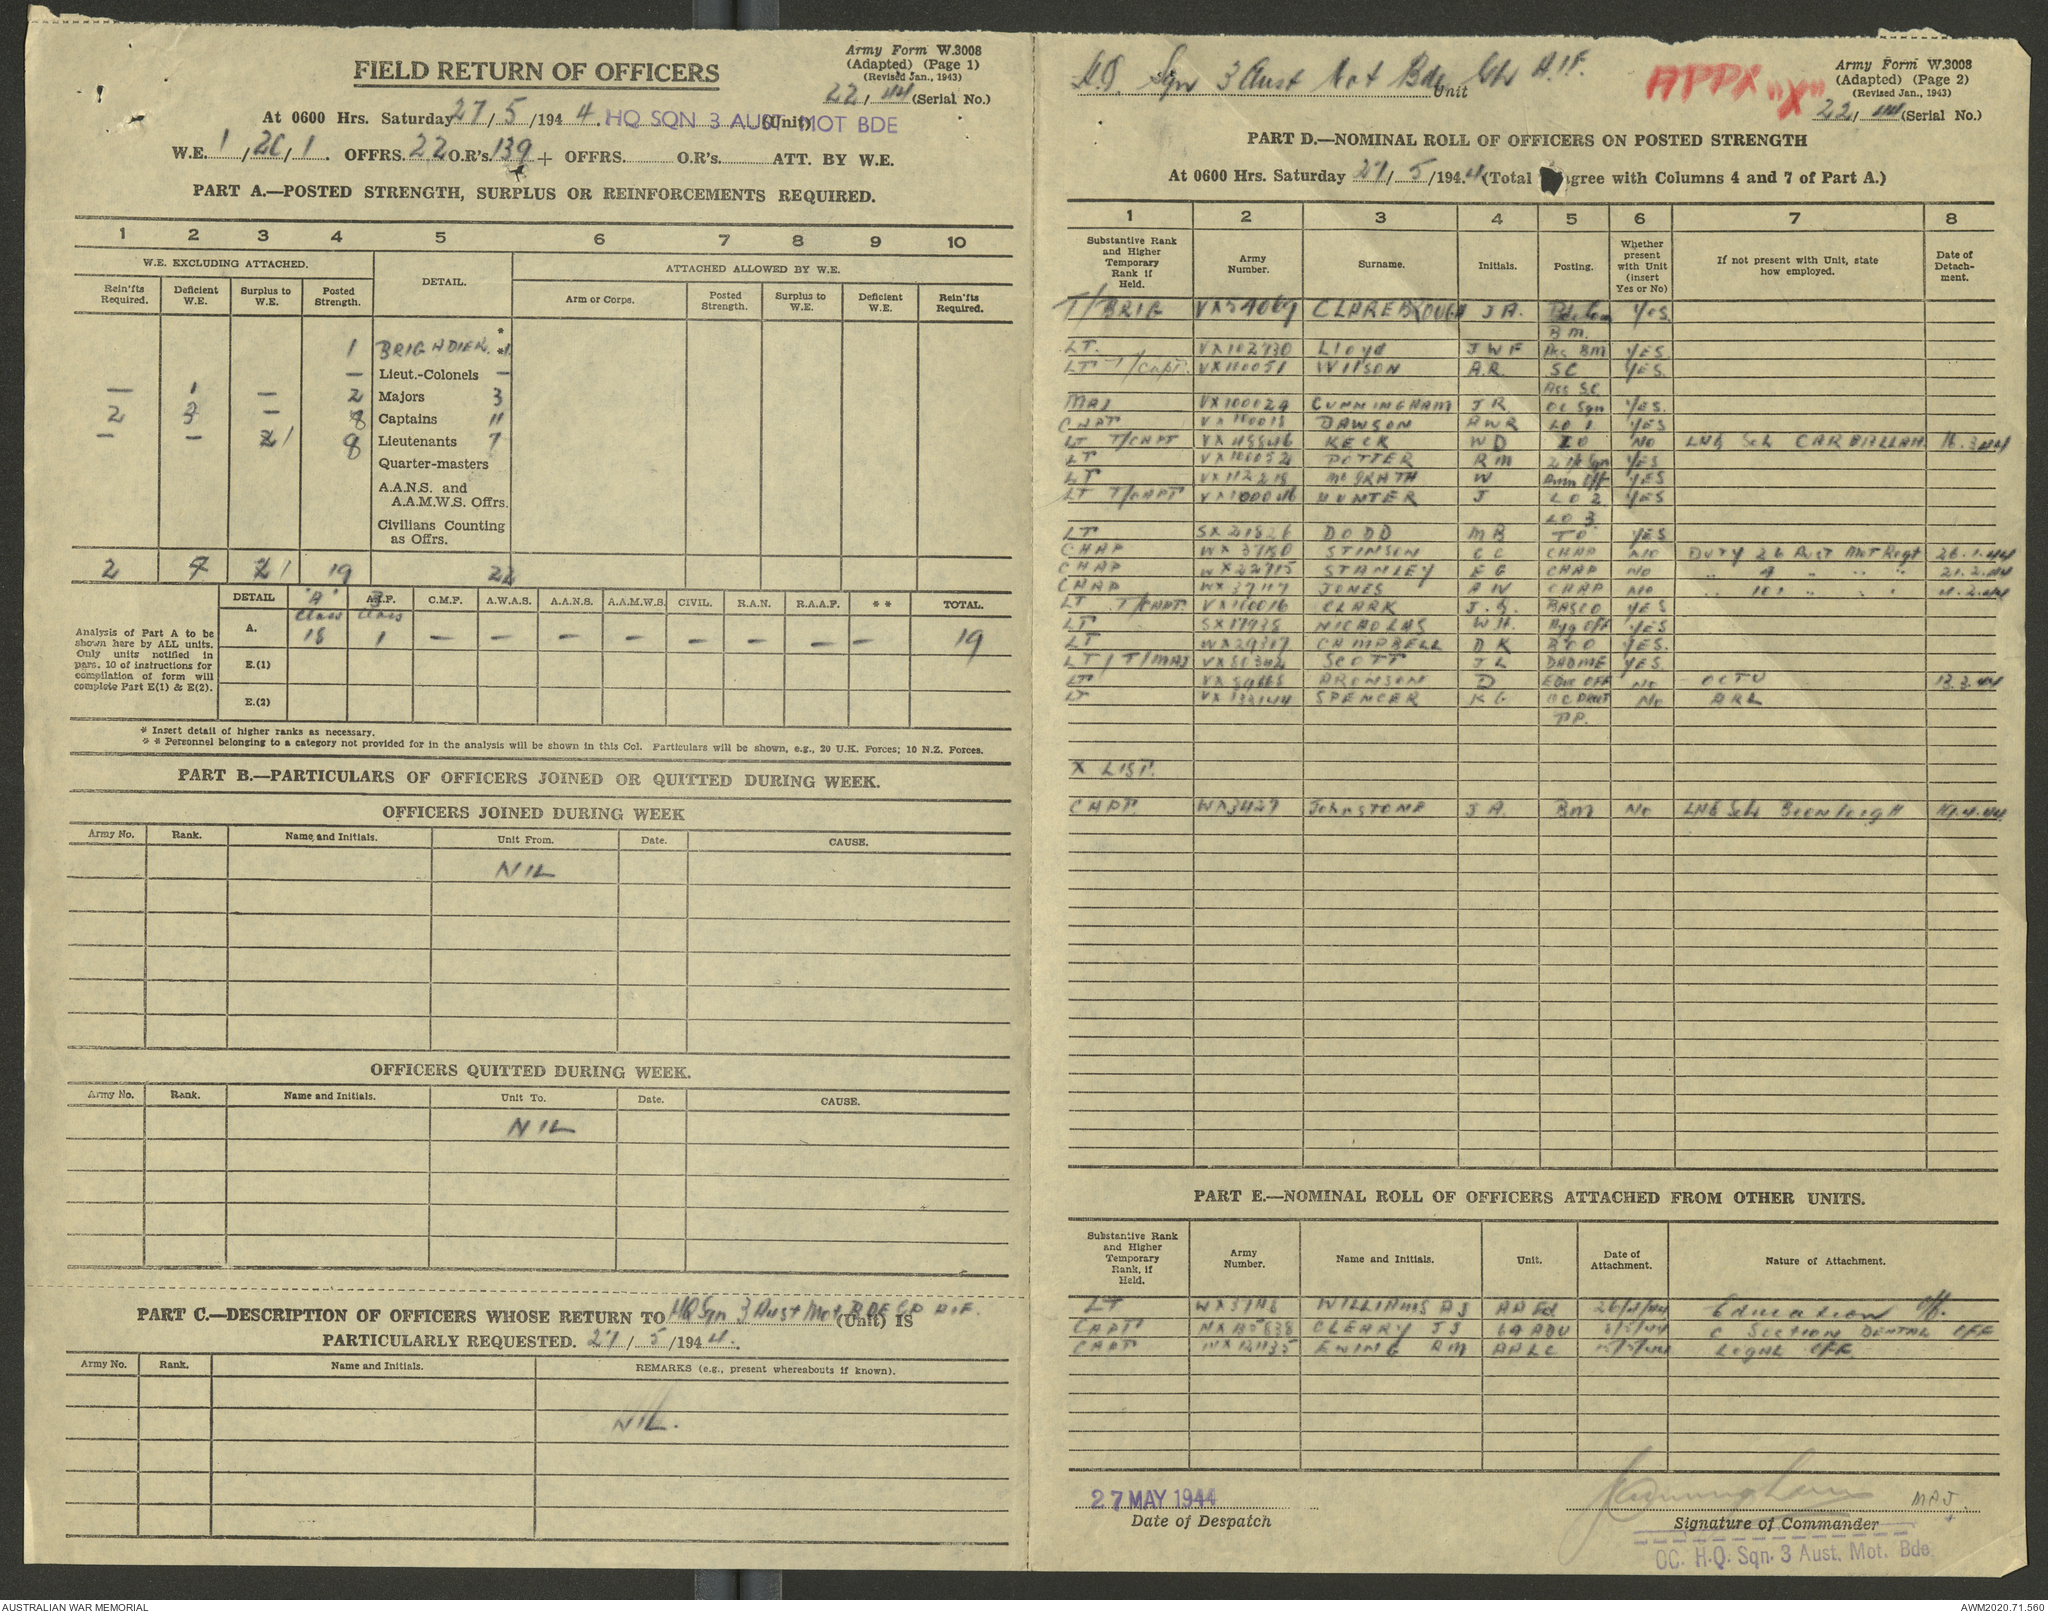 Army Form W.3008
(Adapted) (Page 1)
(Revised Jan., 1943)
22/44 (Serial No.)
FIELD RETURN OF OFFICERS
At 0600 Hrs. Saturday 27/5/1944. HQ SQN 3 AUST MOT BDE (Unit)
W.E. 1/20/1. OFFRS. 22 O.R's. 139 + OFFRS. O.R's. ATT. BY W.E.
PART A.—POSTED STRENGTH, SURPLUS OR REINFORCEMENTS REQUIRED.
1 2 3 4 5 6 7 8 9 10
W.E. EXCLUDING ATTACHED. DETAIL. ATTACHED ALLOWED BY W.E.
Rein'fts Required. Deficient W.E. Surplus to W.E. Posted Strength. Arm or Corps. Posted Strength. Surplus to W.E. Deficient W.E. Rein'fts Required.
*
1 BRIGADIER. *1
— Lieut.-Colonels —
— 1 — 2 Majors 3
2 3 — 8 Captains 11
— — 1 8 Lieutenants 7
Quarter-masters
A.A.N.S. and
A.A.M.W.S. Offrs.
Civilians Counting
as Offrs.
2 4 1 19 22
DETAIL "A" Class A.I.F. B Class C.M.F. A.W.A.S. A.A.N.S. A.A.M.W.S. CIVIL. R.A.N. R.A.A.F. ** TOTAL.
Analysis of Part A to be
shown here by ALL units.
Only units notified in
para. 10 of instructions for
compilation of form will
complete Part E(1) & E(2).
A. 18 1 — — — — — — — — 19
E.(1)
E.(2)
* Insert detail of higher ranks as necessary.
** Personnel belonging to a category not provided for in the analysis will be shown in this Col. Particulars will be shown, e.g., 20 U.K. Forces; 10 N.Z. Forces.
PART B.—PARTICULARS OF OFFICERS JOINED OR QUITTED DURING WEEK.
OFFICERS JOINED DURING WEEK
Army No. Rank. Name and Initials. Unit From. Date. CAUSE.
NIL
OFFICERS QUITTED DURING WEEK.
Army No. Rank. Name and Initials. Unit To. Date. CAUSE.
NIL
PART C.—DESCRIPTION OF OFFICERS WHOSE RETURN TO HQ Sqn 3 Aust Mot BDE GP AIF. (Unit) IS
PARTICULARLY REQUESTED. 27/5/1944.
Army No. Rank. Name and Initials. REMARKS (e.g., present whereabouts if known).
NIL.
H.Q. Sqn 3 Aust Mot Bde Gp A.I.F. Unit
APPX "X"
Army Form W.3008
(Adapted) (Page 2)
(Revised Jan., 1943)
22/44 (Serial No.)
PART D.—NOMINAL ROLL OF OFFICERS ON POSTED STRENGTH
At 0600 Hrs. Saturday 27/5/1944 (Total agree with Columns 4 and 7 of Part A.)
1 2 3 4 5 6 7 8
Substantive Rank and Higher Temporary Rank if Held. Army Number. Surname. Initials. Posting. Whether present with Unit (insert Yes or No) If not present with Unit, state how employed. Date of Detachment.
T/BRIG CLAREBROUGH J A. Bde Com YES.
B M.
LT. VX102730 Lloyd J W F Ass BM YES
LT T/Capt. VX110051 WILSON A.R. SC YES.
Ass SC
MAJ VX100029 CUNNINGHAM J R. OC Sqn YES.
CAPT DAWSON A W R LO 1 YES
LT T/CAPT VX45546 KECK W D IO NO LHQ Sch CARBALLAH 16.3.44
LT VX100052 POTTER R M YES
LT VX112218 McGRATH W Amn Off YES
LT T/CAPT VX100046 HUNTER J LO 2 YES
LO 3
LT SX21526 DODD M B TO YES
CHAP WX37180 STIMSON G C CHAP NO Duty 26 Aust Mot Regt 26.1.44
CHAP WX22715 STANLEY E G CHAP NO " 4 " " " 21.2.44
CHAP WX37117 JONES A W CHAP NO " 101 " " "
LT T/CAPT. VX100016 CLARK J. G. BASCO YES
LT SX17938 NICHOLAS W H. Hyg Off YES
LT WX29317 CAMPBELL D K BOO YES.
LT / T/MAJ VX80342 SCOTT J L DADME YES.
LT ARONSON D Educ OFF NO OCTU 13.3.44
LT VX133144 SPENCER K G NO ARL
X LIST.
CAPT. WX3427 JohnSTONE J A. BM NO LHQ Sch Beenleigh 19.4.44
PART E.—NOMINAL ROLL OF OFFICERS ATTACHED FROM OTHER UNITS.
Substantive Rank and Higher Temporary Rank, if Held. Army Number. Name and Initials. Unit. Date of Attachment. Nature of Attachment.
LT WILLIAMS A J AAEd 26/4/44 Education Off.
CAPT CLEARY J J ADU C SECTION DENTAL OFF
CAPT EWING R M AALC LEGAL OFF.
27 MAY 1944
Date of Despatch
J Cunningham MAJ.
Signature of Commander
OC. H.Q. Sqn. 3 Aust. Mot. Bde
AUSTRALIAN WAR MEMORIAL
AWM2020.71.560